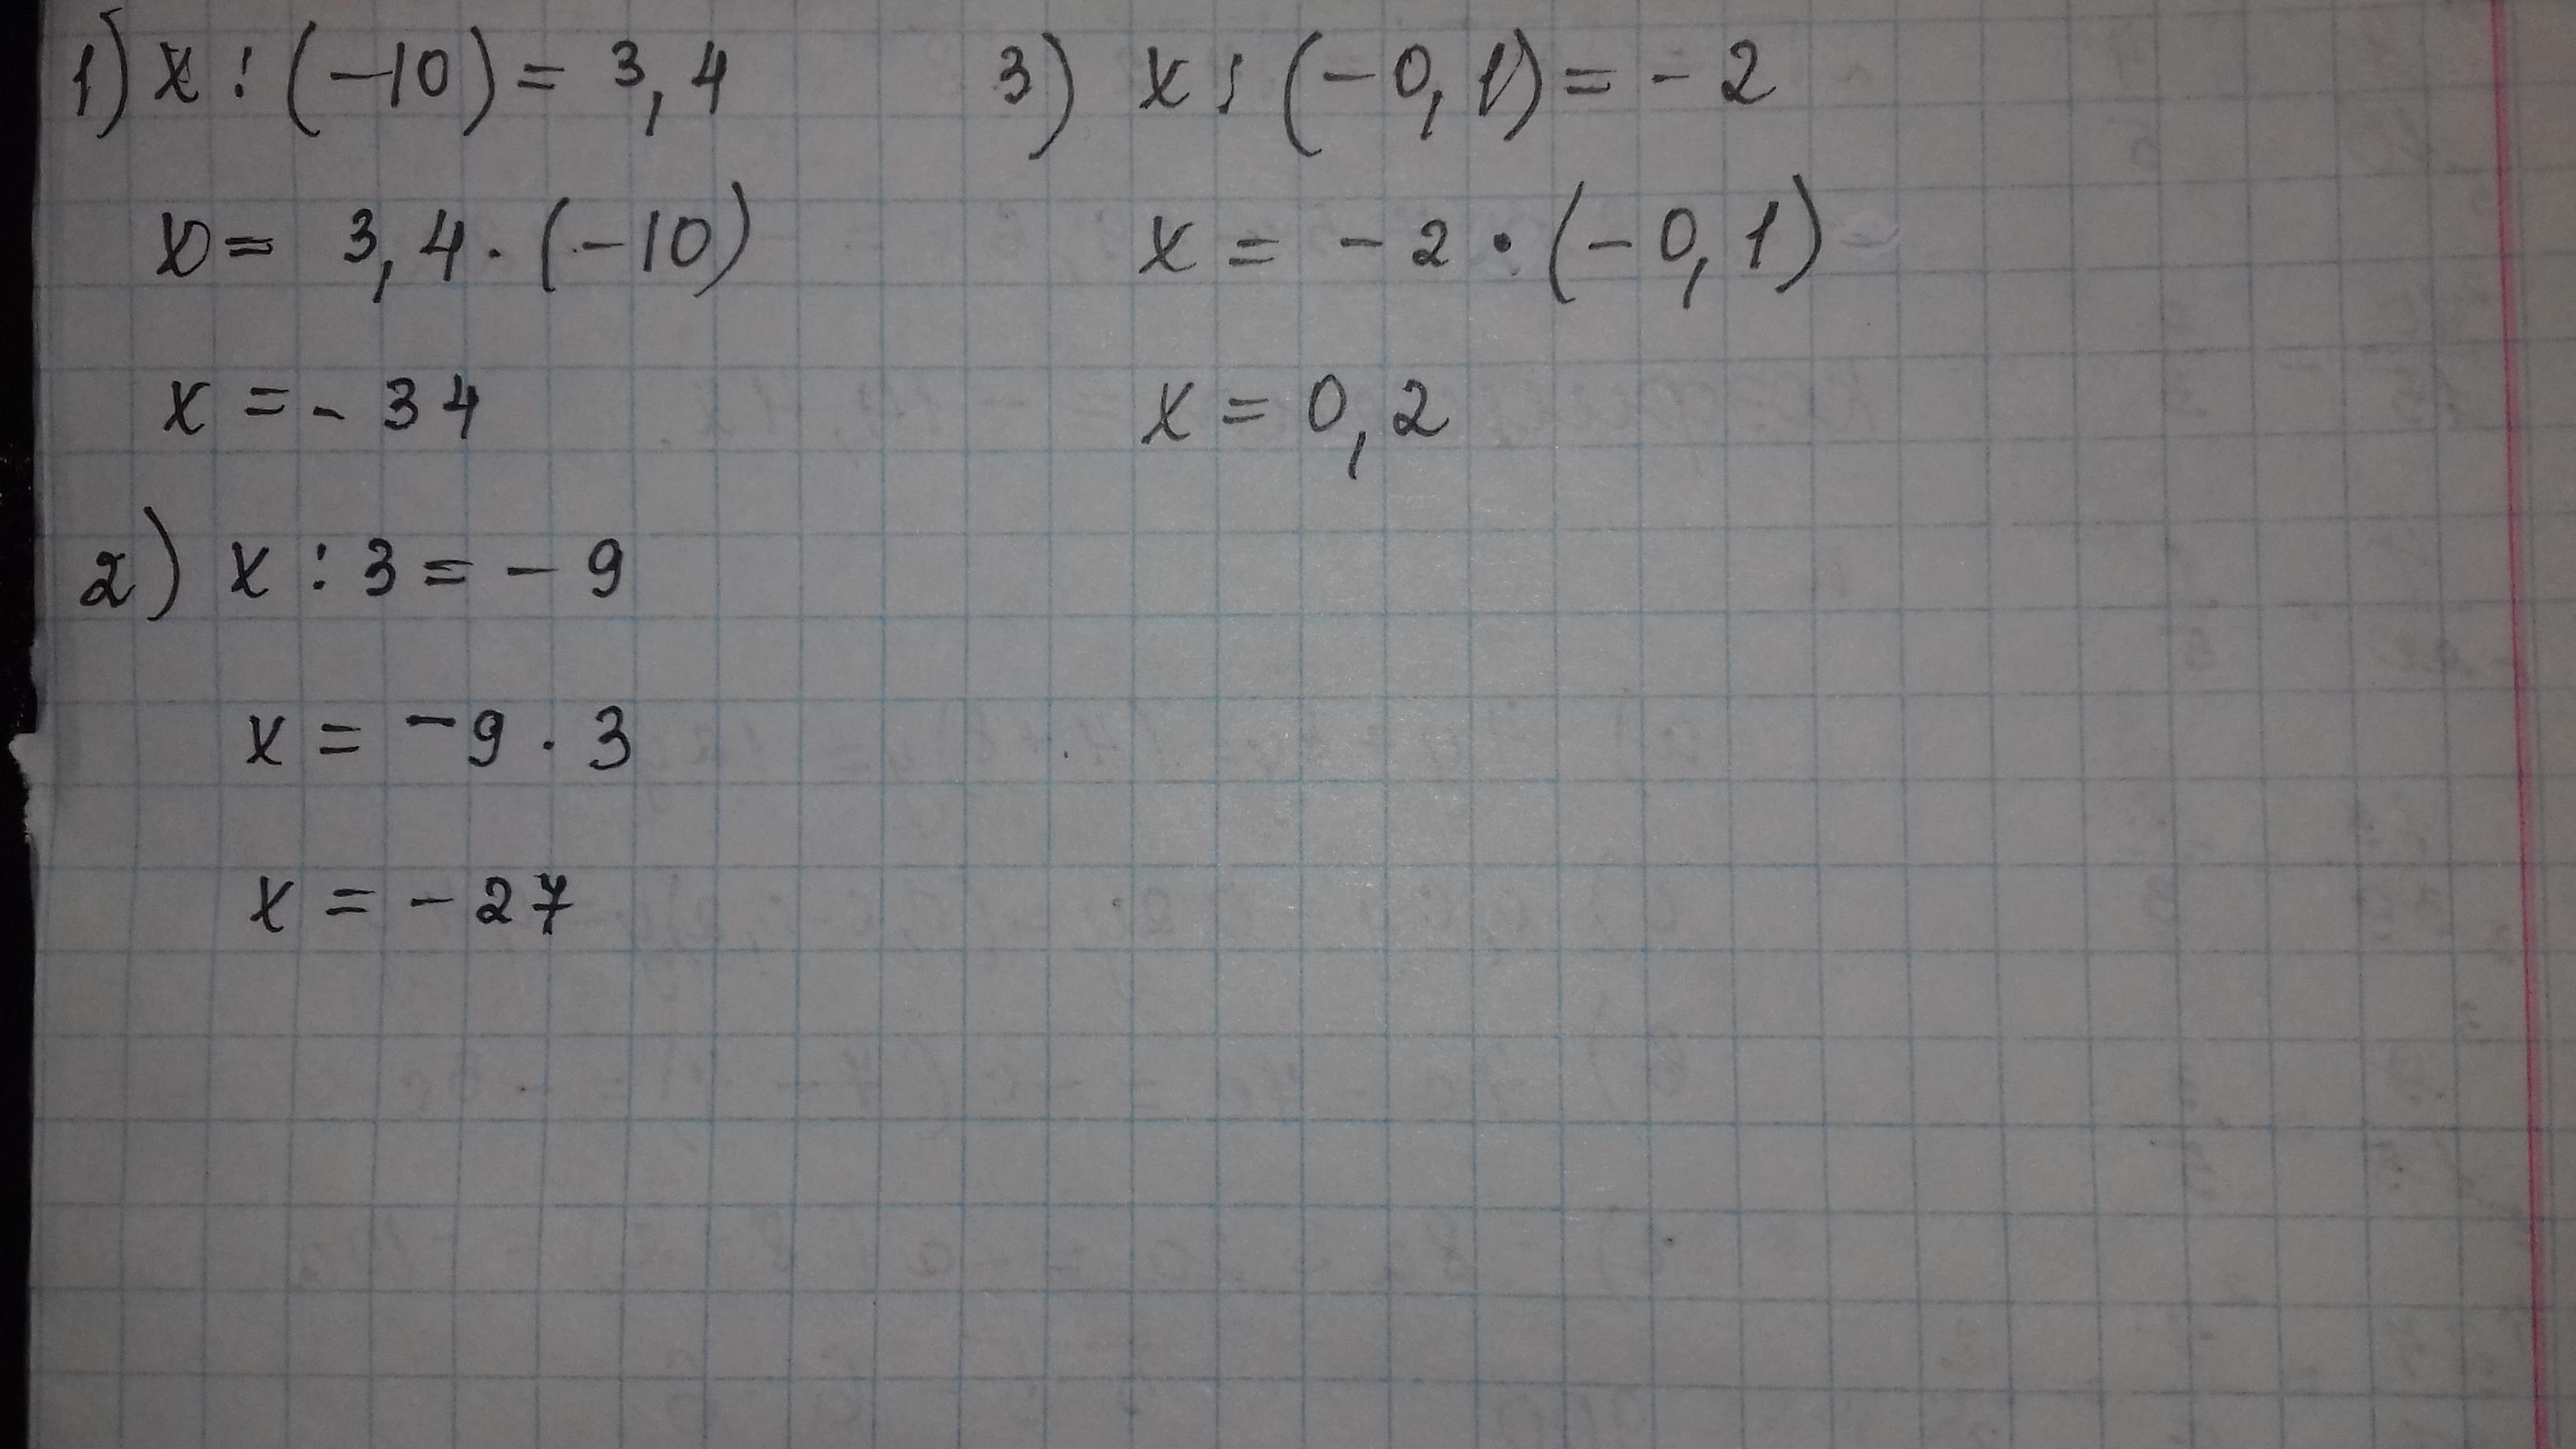 1) x : (-10) = 3,4
x = 3,4 · (-10)
x = - 34
2) x : 3 = - 9
x = -9 · 3
x = - 27
3) x : (-0,1) = - 2
x = - 2 · (-0,1)
x = 0,2